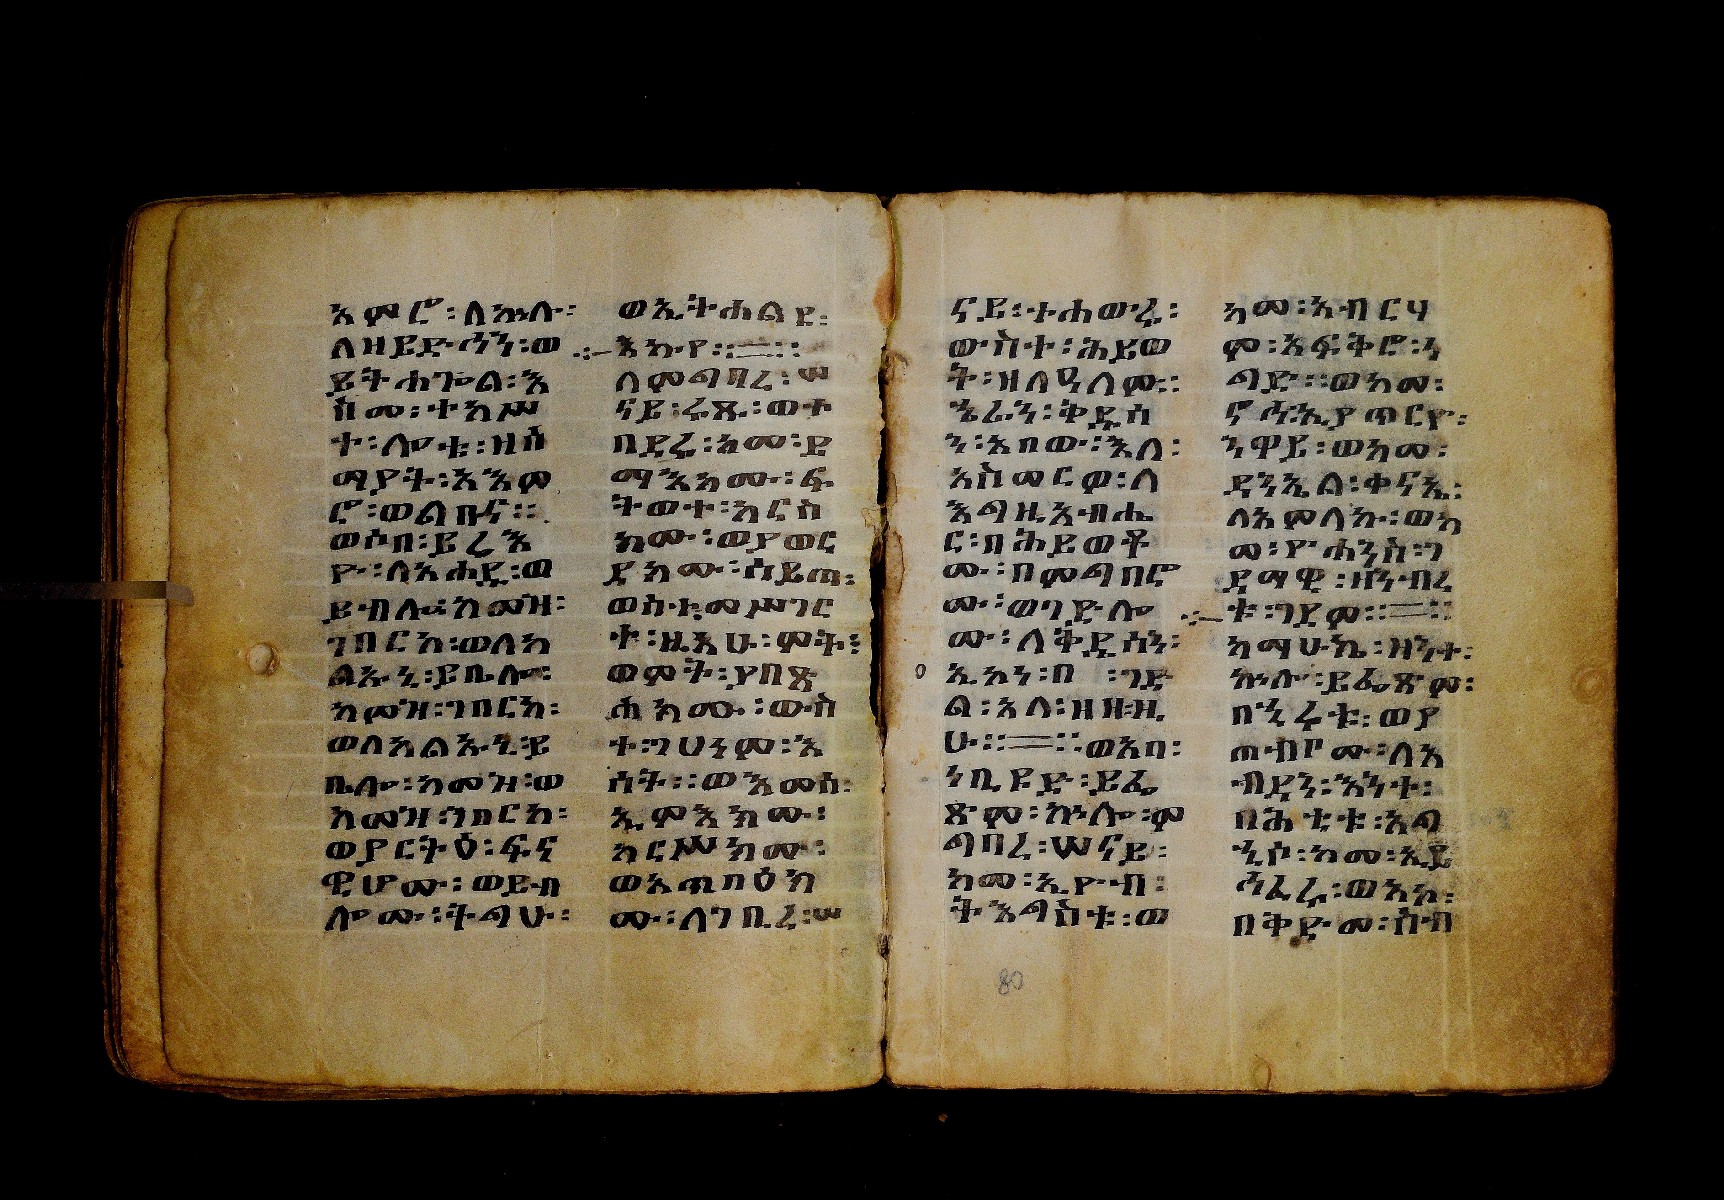 እምሮ፡ለኵሉ፡
ለዘይድኅን፡ወ
ይትሐጐል፡እ
ስመ፡ተከሥ
ተ፡ሎቱ፡ዘሰ
ማያት፡እአም
ሮ፡ወልቡና።
ወሶበ፡ይሬእ
ዮ፡ለአሐዱ፡ወ
ይብሎ፡ከመዝ፡
ገብርከ፡ወለካ
ልኡኒ፡ይቤሎ፡
ከመዝ፡ገብርከ፡
ወለካልኡኒ፡ይ
ቤሎ፡ከመዝ፡ወ
ከመዝ፡ገብርከ፡
ወያርትዕ፡ፍና
ዊሆሙ፡ወይብ
ሎሙ፡ትግሁ፡
ወኢትሐልዩ፡
እኩየ።
ለምግባረ፡ሠ
ናይ፡ሩጹ፡ወተ
በደሩ፡ከመ፡ይ
ማእክሙ፡ፍ
ትወተ፡አርስ
ክሙ፡ወያወር
ድክሙ፡ሲይጠ፡
ወስተ፡መሥገር
ት፡ዚአሁ፡ሞት፡
ወሞት፡ያበጽ
ሕክሙ፡ውስ
ተ፡ገሀነም፡እ
ሳት፡ወእመሰ፡
ኢሞእክሙ፡
አርሥክሙ፡
ወአጠበዕክ
ሙ፡ለገቢረ፡ሠ
ናይ፡ተሐውሩ፡
ውስተ፡ሕይወ
ት፡ዘለዓለም፡
ኄራን፡ቅዱሳ
ን፡አበው፡እለ፡
አስመርዎ፡ለ
እግዚአብሔ
ር፡በሕይወቶ
ሙ፡በምግባሮ
ሙ፡ወገድሎ
ሙ፡ለቅዱሳን፡
ኢአነ፡በ፡ገድ
ል፡አላ፡ዘዘዚ
ሁ።ወአባ፡
ነቢዩድ፡ይፌ
ጽም፡ኵሎ፡ም
ግባረ፡ሠናይ፡
ከመ፡ኢዮብ፡
ትእግስቱ፡ወ
ከመ፡አብርሃ
ም፡አፍቅሮ፡ነ
ግድ፡ወከመ፡
ኖኅ፡ኢያጥርዮ፡
ንዋይ፡ወከመ፡
ዳንኤል፡ቀናኢ፡
ለአምላኩ፡ወከ
መ፡ዮሐንስ፡ገ
ዳማዊ፡ዘነብረ
ቱ፡ገዳም።
ከማሁኬ፡ዘንተ፡
ኵሎ፡ይፌጽም፡
በንሩቱ፡ወያ
ጠብዖሙ፡ለአ
ብዳን፡እንተ፡
በሕቲቱ፡አግ
ኒሶ፡ከመ፡ኢይ
ኅፈሩ፡ወአኮ፡
በቅድመ፡ሰብ
80